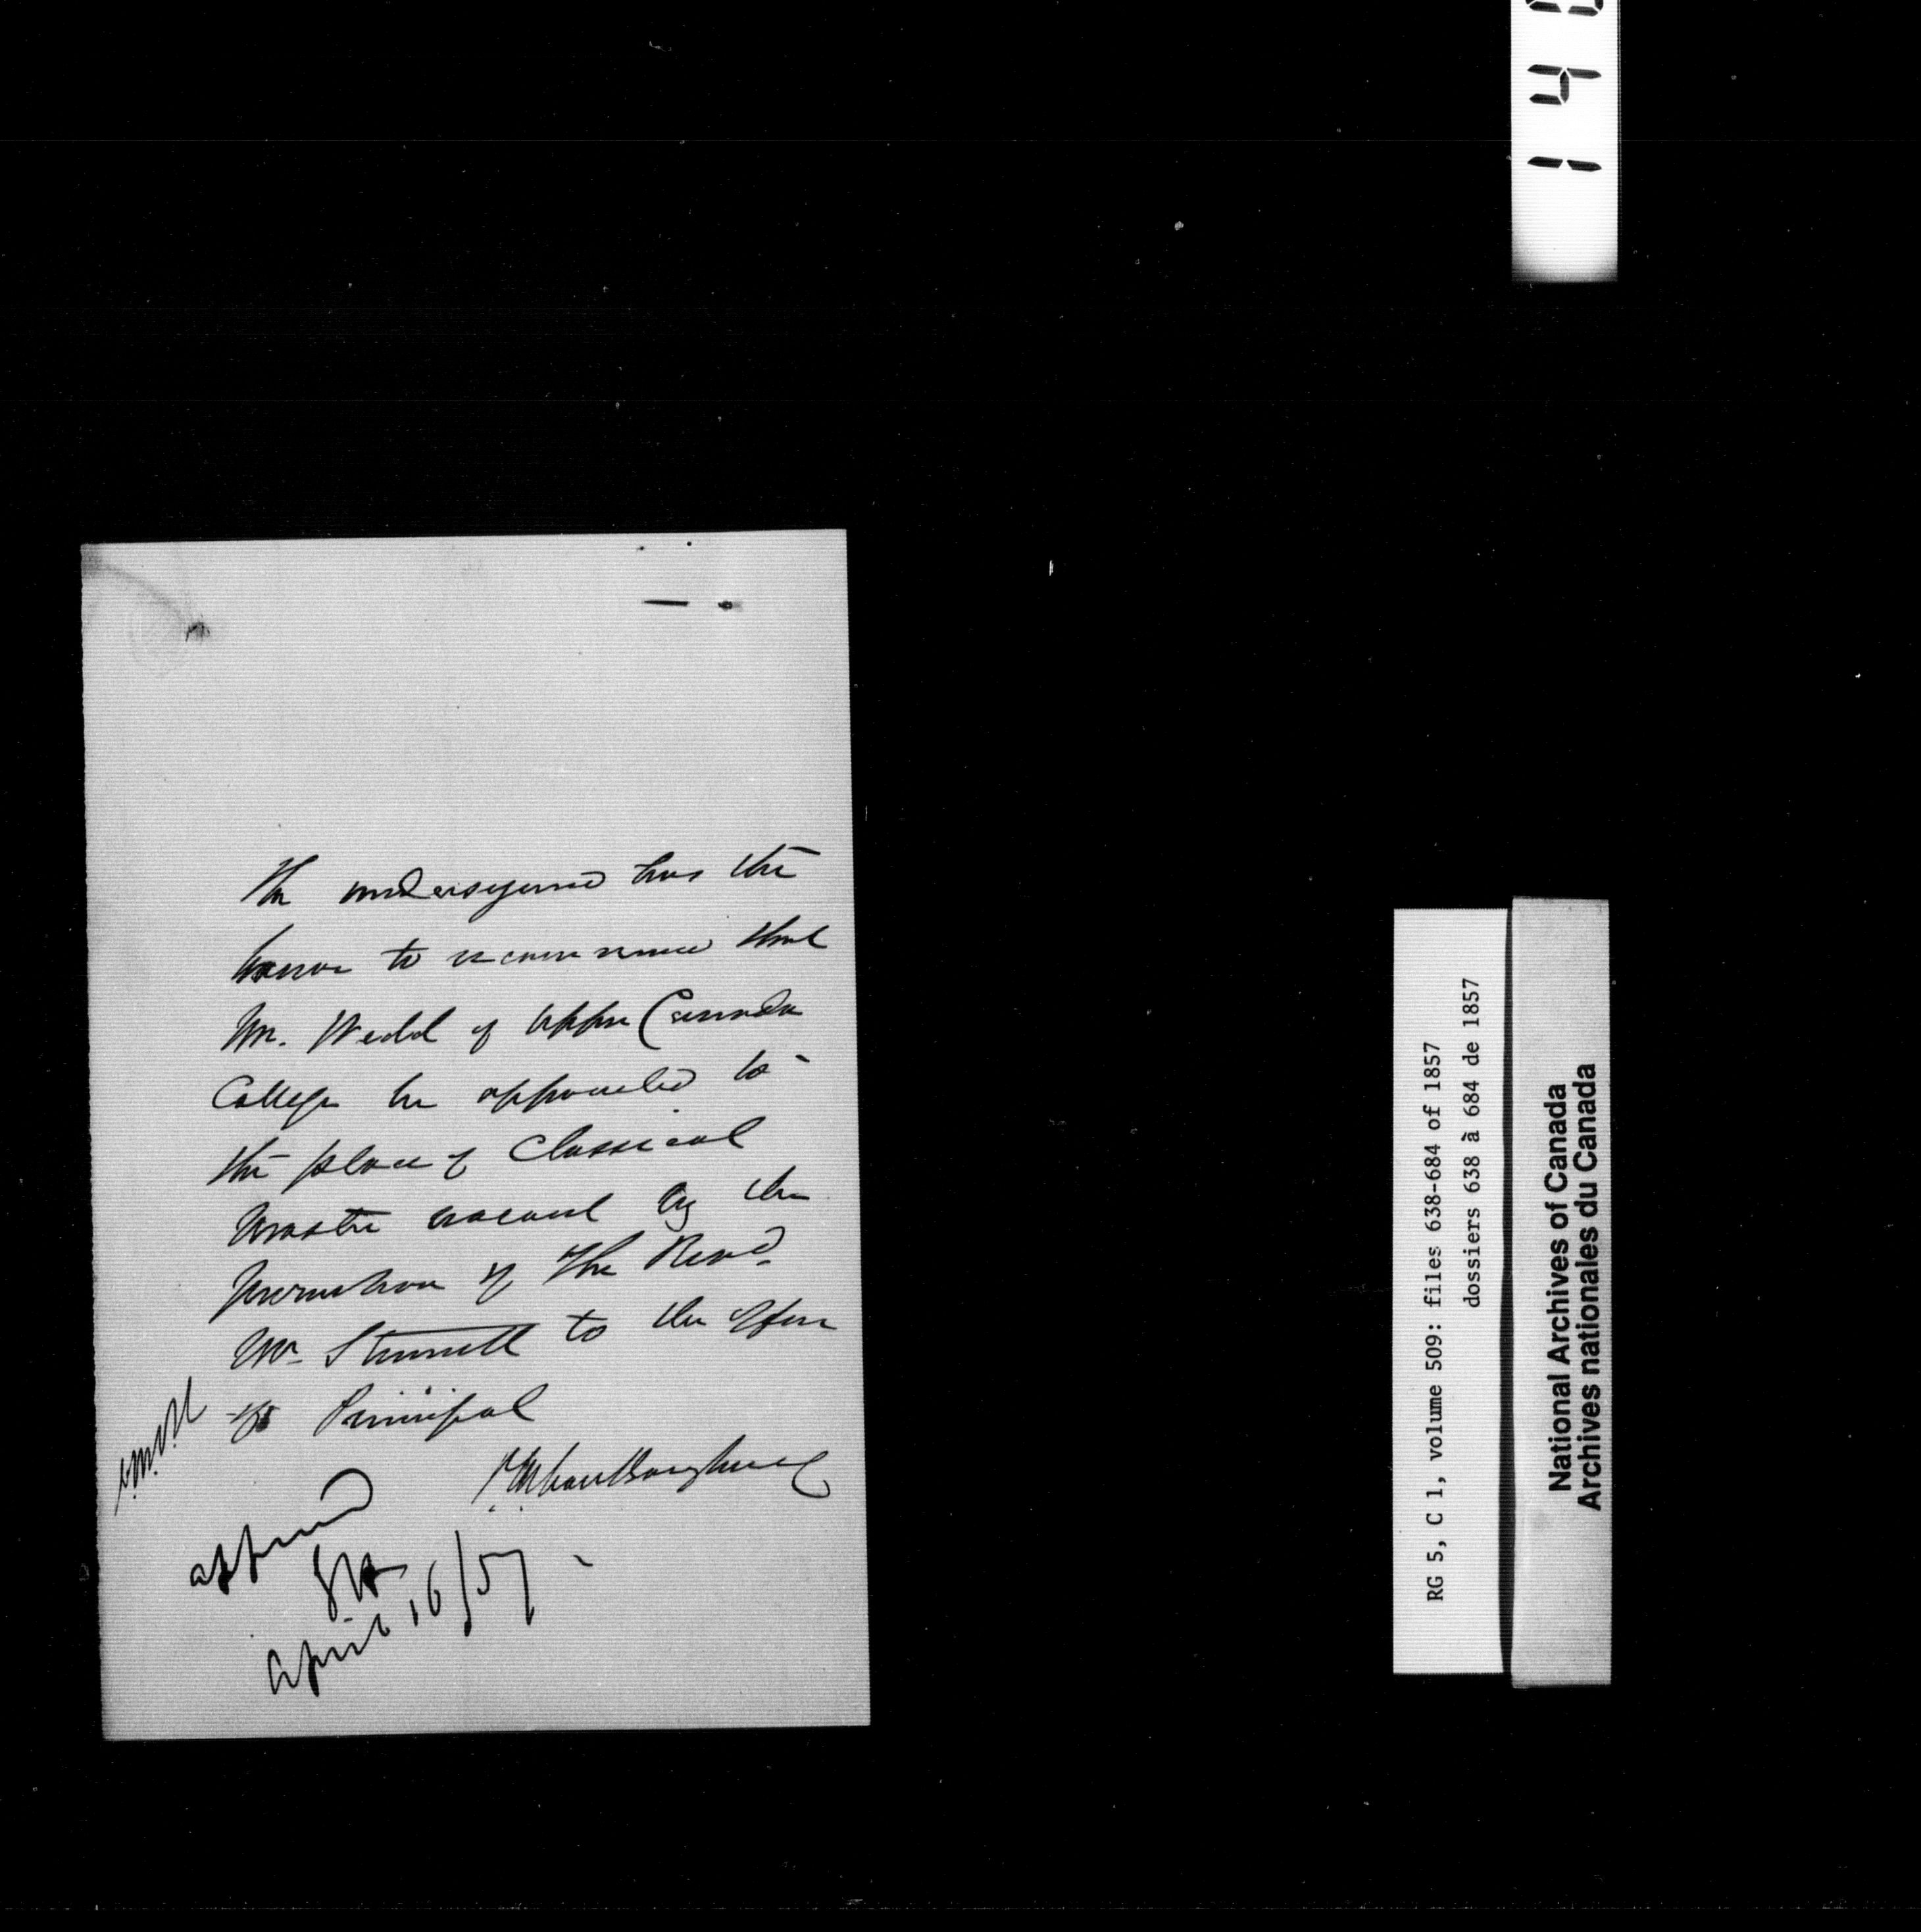 The undersigned has the
honor to recommend that
Mr. Wedd of Upper Canada
College be appointed to
the place of Classical
Master vacant by the
promotion of The Revd.
Mr. Stennett to the Office
of Principal
P. M. VanKoughnet
approved
April 16/57
RG 5, C 1, volume 509: files 638-684 of 1857
dossiers 638 à 684 de 1857
National Archives of Canada
Archives nationales du Canada
1 4